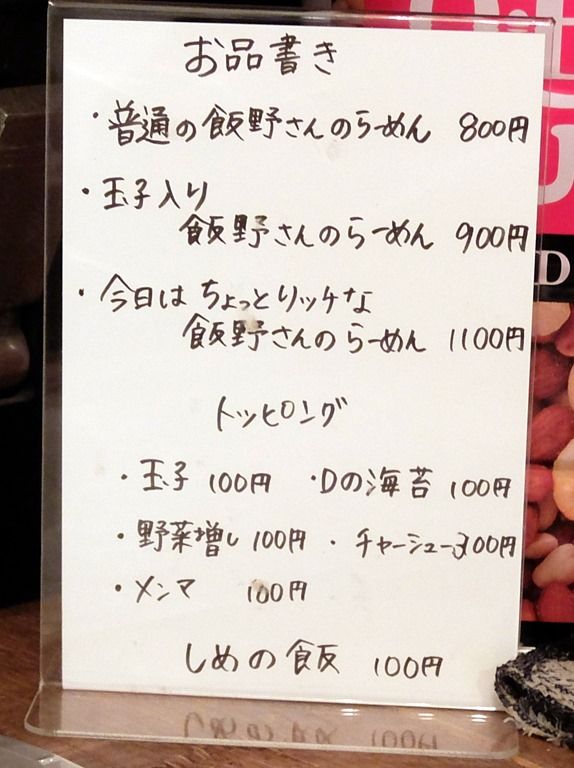 お品書き
・普通の飯野さんのらーめん 800円
・玉子入り
飯野さんのらーめん 900円
・今日はちょっとリッチな
飯野さんのらーめん 1100円
トッピング
・玉子 100円 ・Dの海苔 100円
・野菜増し 100円 ・チャーシュー 300円
・メンマ 100円
しめの飯 100円
D